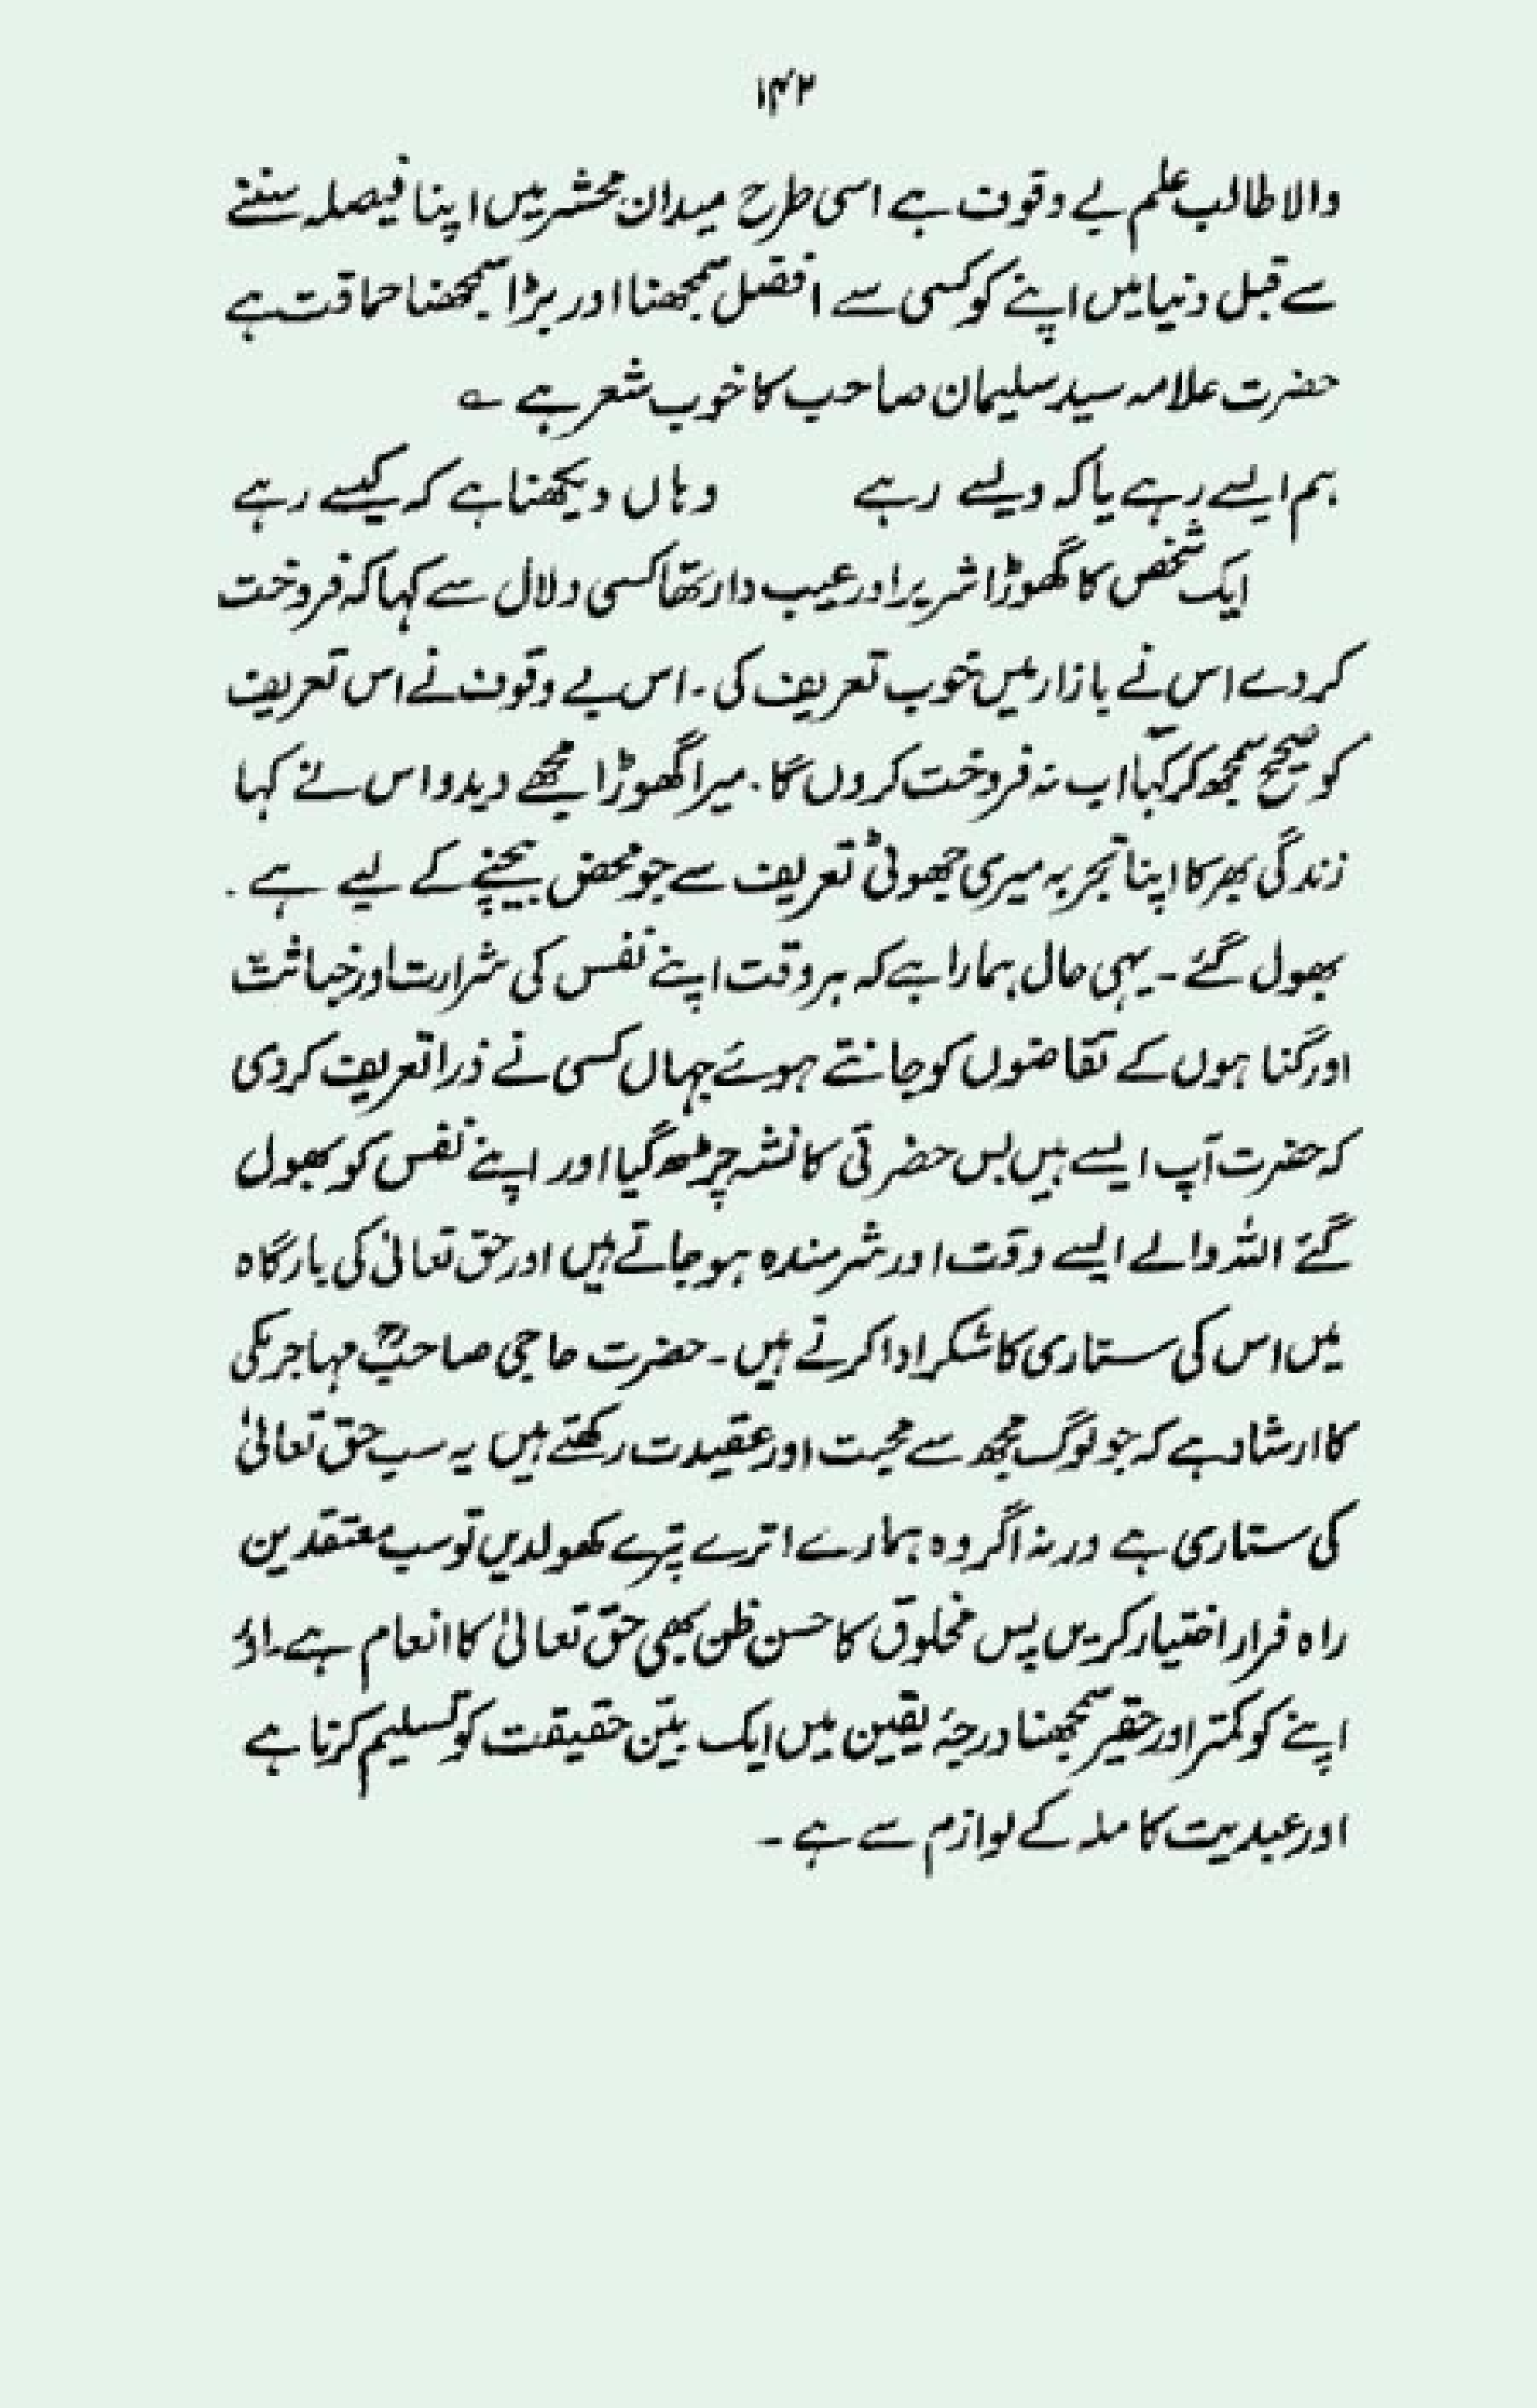 ۱۴۲
والا طالب علم بے وقوف ہے اسی طرح میدان محشر میں اپنا فیصلہ سننے
سے قبل دنیا میں اپنے کو کسی سے افضل سمجھنا اور بڑا سمجھنا حماقت ہے
حضرت علامہ سید سلیمان صاحب کا خوب شعر ہے ؎
ہم ایسے رہے یا کہ ویسے رہے وہاں دیکھنا ہے کہ کیسے رہے
ایک شخص کا گھوڑا شریر اور عیب دار تھا کسی دلال سے کہا کہ فروخت
کردے اس نے بازار میں خوب تعریف کی۔ اس بے وقوف نے اس تعریف
کو صحیح سمجھ کر کہا اب نہ فروخت کروں گا۔ میرا گھوڑا مجھے دیدو اس نے کہا
زندگی بھر کا اپنا تجربہ میری جھوٹی تعریف سے جو محض بیچنے کے لیے ہے۔
بھول گئے۔ یہی حال ہمارا ہے کہ ہر وقت اپنے نفس کی شرارت اور خباثت
اور گناہوں کے تقاضوں کو جانتے ہوئے جہاں کسی نے ذرا تعریف کردی
کہ حضرت آپ ایسے ہیں بس حضرتی کا نشہ چڑھ گیا اور اپنے نفس کو بھول
گئے اللہ والے ایسے وقت اور شرمندہ ہوجاتے ہیں اور حق تعالیٰ کی بارگاہ
میں اس کی ستاری کا شکر ادا کرتے ہیں۔ حضرت حاجی صاحبؒ مہاجر مکی
کا ارشاد ہے کہ جو لوگ مجھ سے محبت اور عقیدت رکھتے ہیں یہ سب حق تعالیٰ
کی ستاری ہے ورنہ اگر وہ ہمارے اترے پترے کھولدیں تو سب معتقدین
راہ فرار اختیار کریں پس مخلوق کا حسن ظن بھی حق تعالیٰ کا انعام ہے۔ اور
اپنے کو کمتر اور حقیر سمجھنا درجۂ یقین میں ایک بیّن حقیقت کو تسلیم کرنا ہے
اور عبدیت کاملہ کے لوازم سے ہے۔